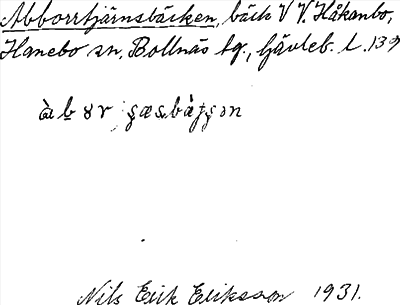 Abborrtjärnsbäcken, bäck V V. Håkanbo,
Hanebo sn, Bollnäs tg., Gävleb. l. 139
Nils Erik Eriksson 1931.